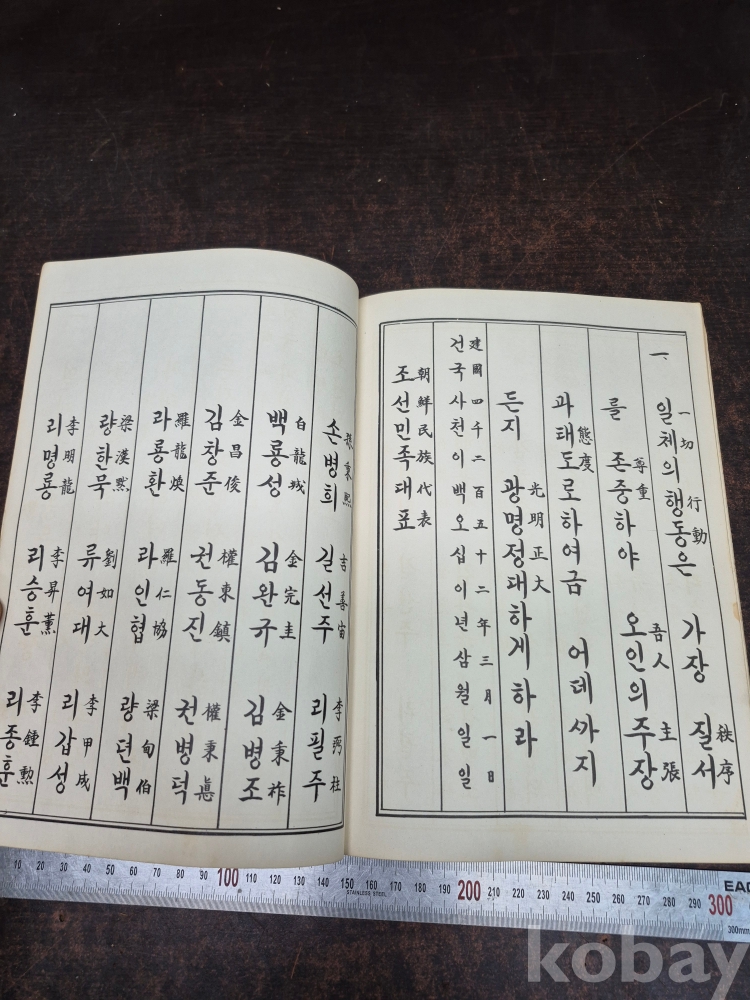 一、 일체의 행동은 가장 질서
一切 行動 秩序
를 존중하야 오인의 주장
尊重 吾人 主張
과 태도로 하여금 어데까지
態度
든지 광명정대하게 하라
光明正大
건국사천이백오십이년삼월일일
建國四千二百五十二年三月一日
조선민족대표
朝鮮民族代表
손병희 길선주 리필주
孫秉熙 吉善宙 李弼柱
백룡성 김완규 김병조
白龍城 金完圭 金秉祚
김창준 권동진 권병덕
金昌俊 權東鎭 權秉悳
라룡환 라인협 량뎐백
羅龍煥 羅仁協 梁甸伯
량한묵 류여대 리갑성
梁漢默 劉如大 李甲成
리명룡 리승훈 리종훈
李明龍 李昇薰 李鍾勳
10 20 30 40 50 60 70 80 90 100 110 120 130 140 150 160 170 180 190 200 210 220 230 240 250 260 270 280 290 300
STAINLESS STEEL
300mm
kobay